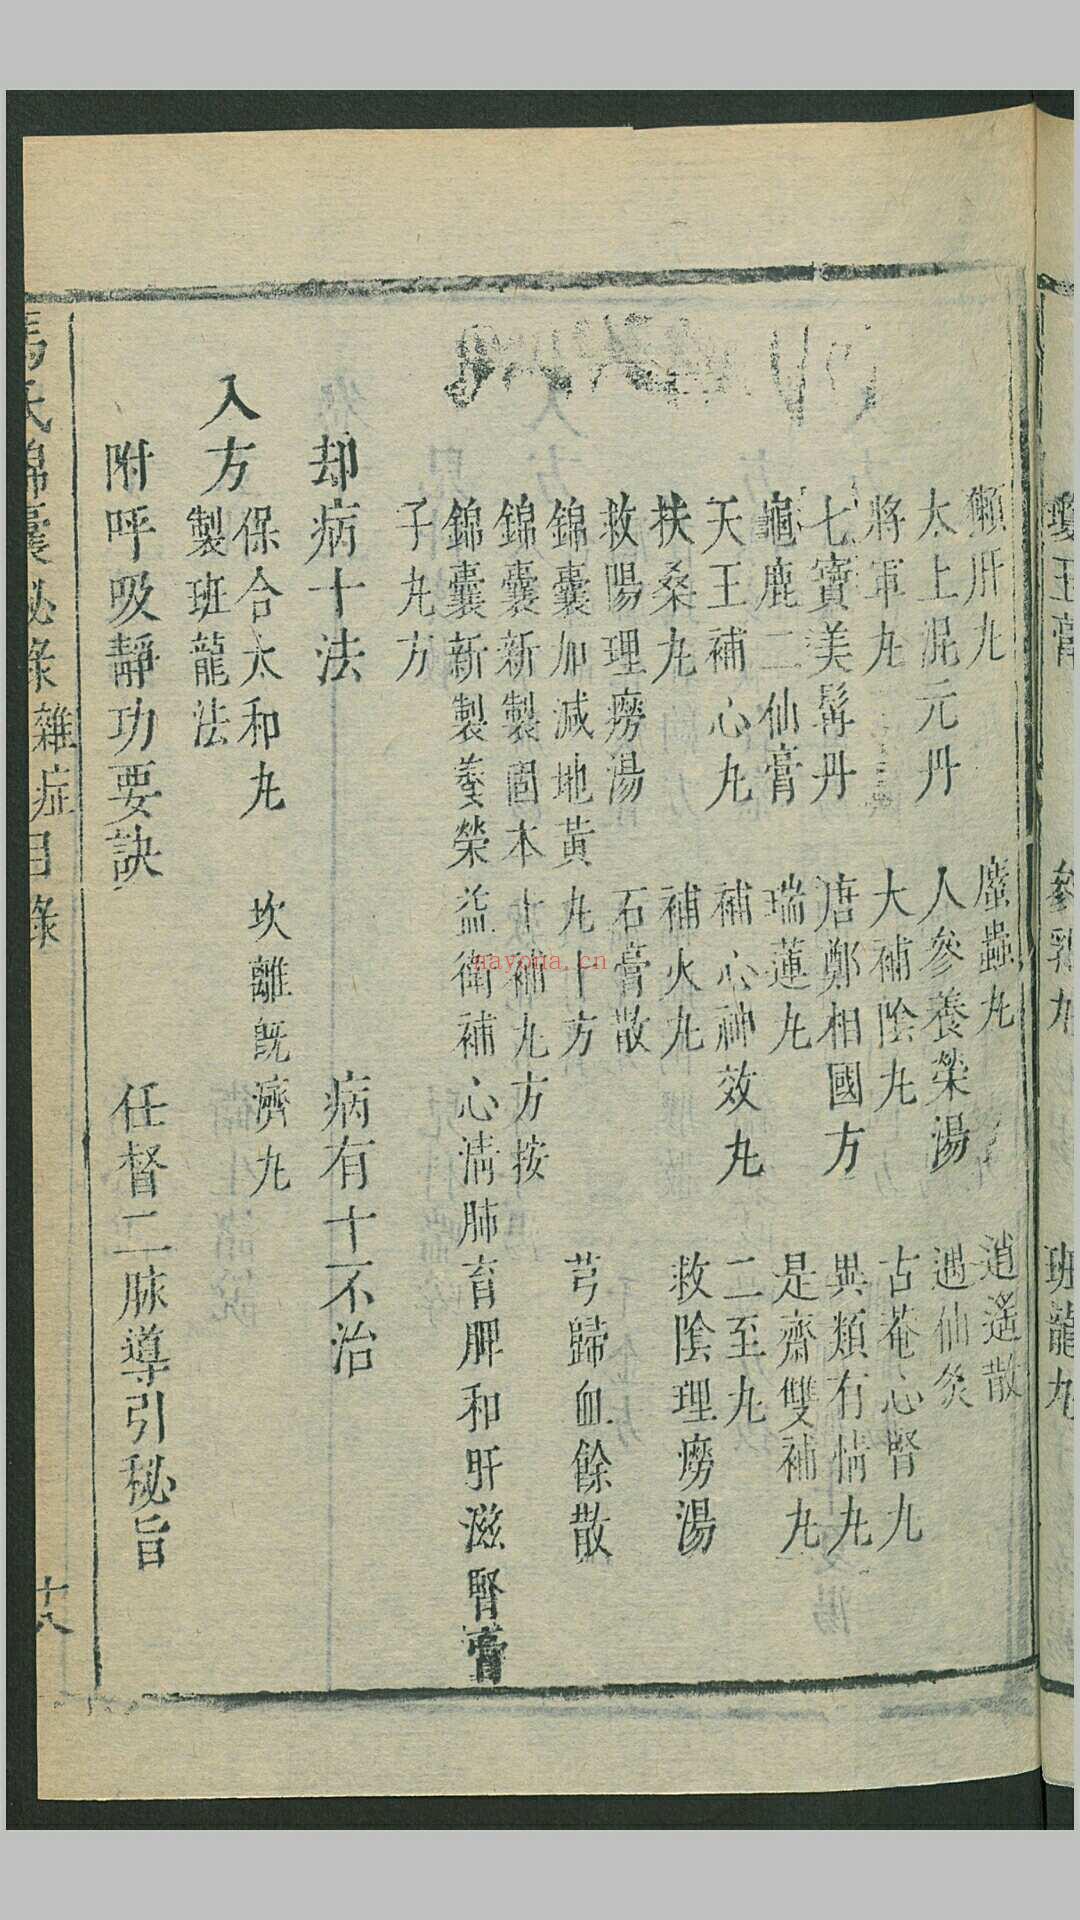 瓊玉膏 參乳丸 班龍丸
獺肝丸 䗪蟲丸 逍遙散
太上混元丹 人參養榮湯 遇仙灸
將軍丸 大補陰丸 古菴心腎丸
七寶美髯丹 唐鄭相國方 異類有情丸
龜鹿二仙膏 瑞蓮丸 是齋雙補丸
天王補心丸 補心神效丸 二至丸
扶桑丸 補火丸 救陰理癆湯
救陽理癆湯 石膏散
錦囊加減地黃丸十方 芎歸血餘散
錦囊新製固本十補丸方按
錦囊新製養榮益衛補心清肺育脾和肝滋腎膏
子丸方
却病十法 病有十不治
入方
保合太和丸 坎離旣濟丸
製班龍法
附呼吸靜功要訣 任督二脉導引秘旨
馮氏錦囊秘錄 雜症目錄 十八
nayona.cn